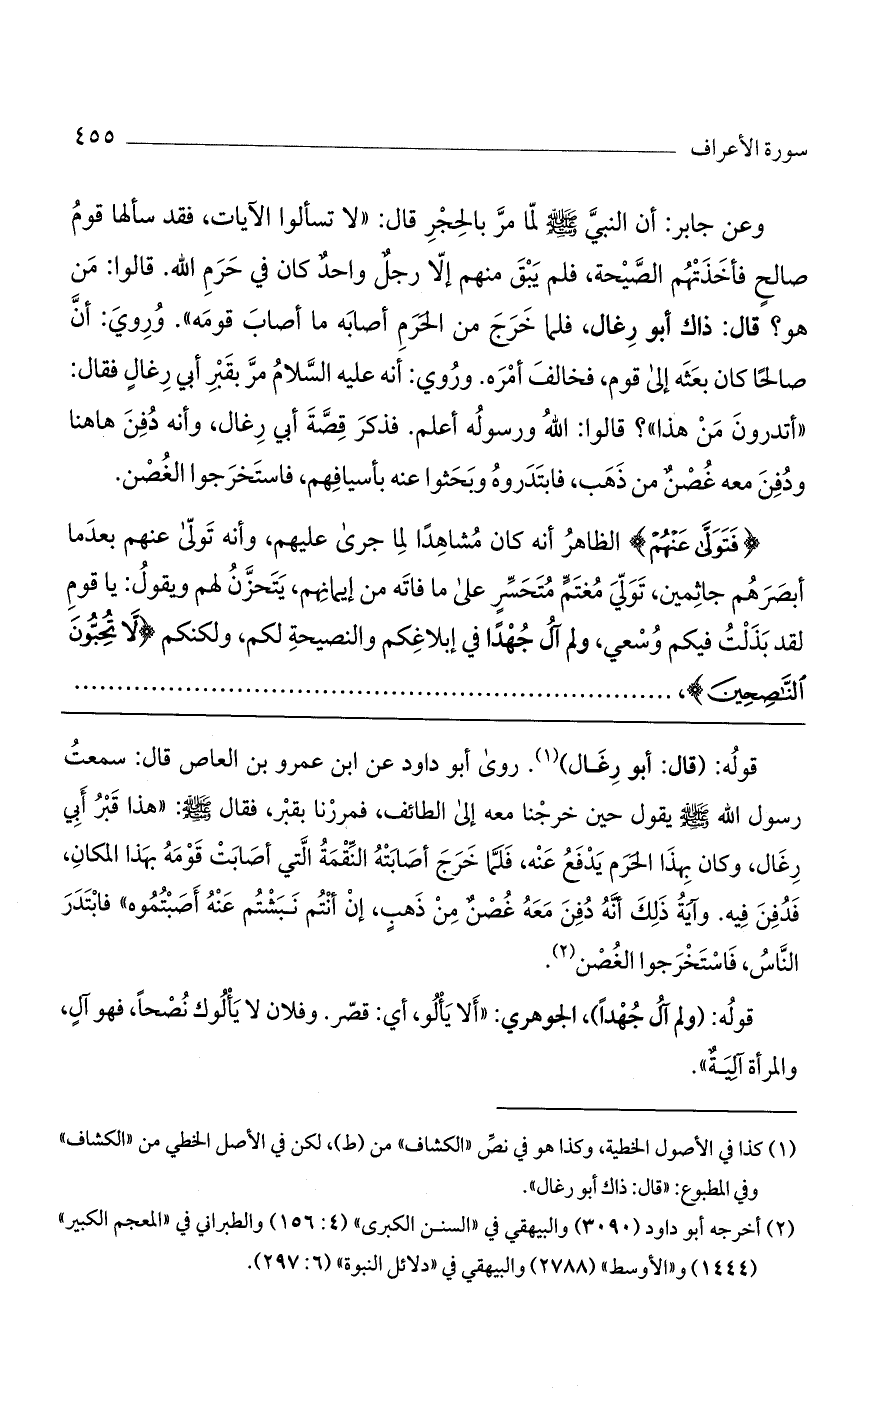 سورة الأعراف ٤٥٥
وعن جابر: أن النبيَّ ﷺ لمّا مرَّ بالحِجْرِ قال: «لا تسألوا الآيات، فقد سألها قومُ
صالحٍ فأخَذَتْهُم الصَّيْحة، فلم يَبْقَ منهم إلّا رجلٌ واحدٌ كان في حَرَمِ الله. قالوا: مَن
هو؟ قال: ذاك أبو رِغال، فلما خَرَجَ من الحَرَمِ أصابَه ما أصابَ قومَه». ورُويَ: أنَّ
صالحًا كان بعَثَه إلىٰ قوم، فخالفَ أمْرَه. ورُوي: أنه عليه السَّلامُ مرَّ بقَبْرِ أبي رِغالٍ فقال:
«أتدرونَ مَنْ هذا»؟ قالوا: اللهُ ورسولُه أعلم. فذكرَ قِصَّةَ أبي رِغال، وأنه دُفِنَ هاهنا
ودُفِنَ معه غُصْنٌ من ذَهَب، فابتَدَروهُ وبَحَثوا عنه بأسيافِهم، فاستَخرَجوا الغُصْن.
﴿فَتَوَلَّىٰ عَنْهُمْ﴾ الظاهرُ أنه كان مُشاهِدًا لِما جرىٰ عليهم، وأنه تَولّىٰ عنهم بعدَما
أبصَرَهُم جاثِمين، تَولّيَ مُغتَمٍّ مُتَحَسِّرٍ علىٰ ما فاتَه من إيمانِهم، يَتَحزَّنُ لهم ويقولُ: يا قومِ
لقد بَذَلْتُ فيكم وُسْعي، ولم آلُ جُهْدًا في إبلاغِكم والنصيحةِ لكم، ولكنكم ﴿لَّا تُحِبُّونَ
ٱلنَّٰصِحِينَ﴾، ..........................................................................
قولُه: (قال: أبو رِغَـال)(١). روىٰ أبو داود عن ابن عمرو بن العاص قال: سمعتُ
رسول الله ﷺ يقول حين خرجْنا معه إلىٰ الطائف، فمررْنا بقبْر، فقال ﷺ: «هذا قَبْرُ أَبي
رِغَال، وكان بِهذَا الحَرَم يَدْفَعُ عَنْه، فَلَمَّا خَرَجَ أصَابَتْهُ النِّقْمَةُ الَّتي أصَابَتْ قَوْمَهُ بِهَذا المكَانِ،
فَدُفِنَ فِيه. وآيَةُ ذَلِكَ أنَّهُ دُفِنَ مَعَهُ غُصْنٌ مِنْ ذَهبٍ، إنْ أنْتُم نَـبَشْتُم عَنْهُ أَصَبْتُمُوه» فابْتَدَرَ
النَّاسُ، فَاسْتَخْرَجوا الغُصْن(٢).
قولُه: (ولم آلُ جُهْداً)، الجوهري: «أَلا يَأْلُو، أي: قصّر. وفلان لا يَأْلُوك نُصْحاً، فهو آلٍ،
والمرأة آلِيَـةٌ».
(١) كذا في الأصول الخطية، وكذا هو في نصِّ «الكشاف» من (ط)، لكن في الأصل الخطي من «الكشاف»
وفي المطبوع: «قال: ذاك أبو رغال».
(٢) أخرجه أبو داود (٣٠٩٠) والبيهقي في «السنـن الكبرى» (٤: ١٥٦) والطبراني في «المعجم الكبير»
(١٤٤٤) و«الأوسط» (٢٧٨٨) والبيهقي في «دلائل النبوة» (٦: ٢٩٧).